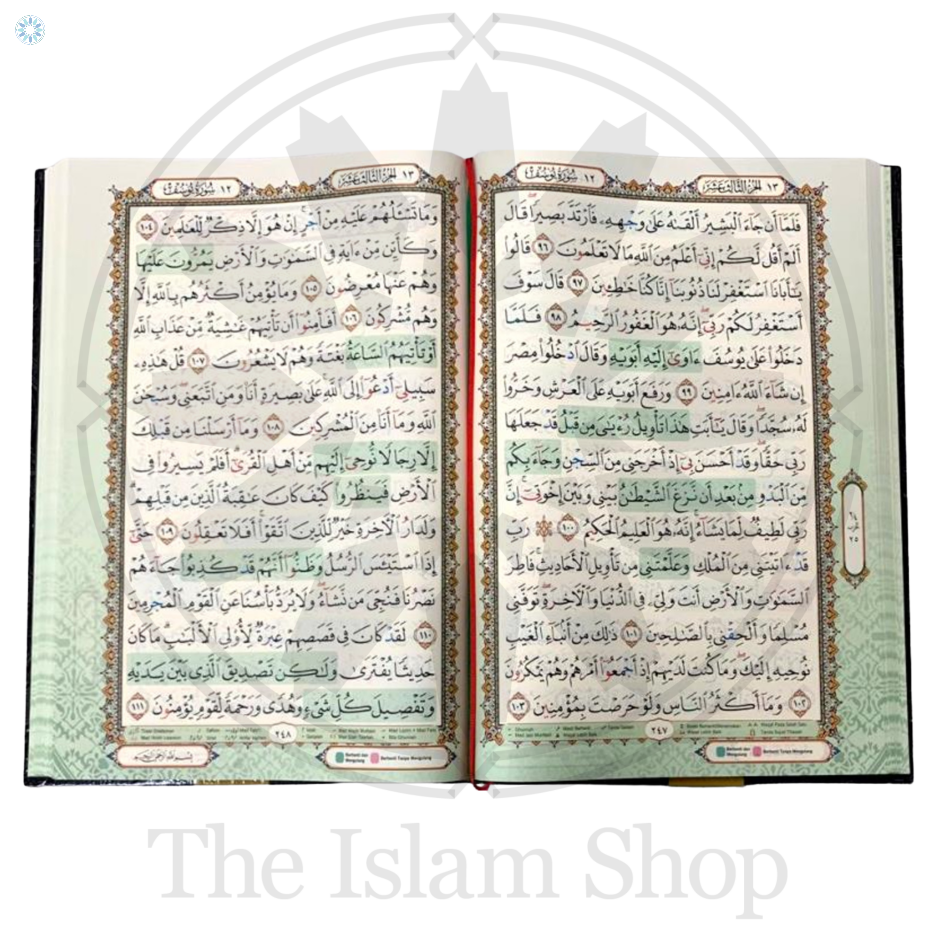 ١٣ الجزء الثالث عشر
١٢ سورة يوسف
فَلَمَّا أَن جَاءَ الْبَشِيرُ أَلْقَىٰهُ عَلَىٰ وَجْهِهِ فَارْتَدَّ بَصِيرًا قَالَ
أَلَمْ أَقُل لَّكُمْ إِنِّي أَعْلَمُ مِنَ اللَّهِ مَا لَا تَعْلَمُونَ ٩٦ قَالُوا
يَٰأَبَانَا اسْتَغْفِرْ لَنَا ذُنُوبَنَا إِنَّا كُنَّا خَٰطِـِٔينَ ٩٧ قَالَ سَوْفَ
أَسْتَغْفِرُ لَكُمْ رَبِّي إِنَّهُ هُوَ الْغَفُورُ الرَّحِيمُ ٩٨ فَلَمَّا
دَخَلُوا عَلَىٰ يُوسُفَ ءَاوَىٰ إِلَيْهِ أَبَوَيْهِ وَقَالَ ادْخُلُوا مِصْرَ
إِن شَاءَ اللَّهُ ءَامِنِينَ ٩٩ وَرَفَعَ أَبَوَيْهِ عَلَى الْعَرْشِ وَخَرُّوا
لَهُ سُجَّدًا وَقَالَ يَٰأَبَتِ هَٰذَا تَأْوِيلُ رُءْيَٰيَ مِن قَبْلُ قَدْ جَعَلَهَا
رَبِّي حَقًّا وَقَدْ أَحْسَنَ بِي إِذْ أَخْرَجَنِي مِنَ السِّجْنِ وَجَاءَ بِكُم
مِّنَ الْبَدْوِ مِن بَعْدِ أَن نَّزَغَ الشَّيْطَٰنُ بَيْنِي وَبَيْنَ إِخْوَتِي إِنَّ
رَبِّي لَطِيفٌ لِّمَا يَشَاءُ إِنَّهُ هُوَ الْعَلِيمُ الْحَكِيمُ ١٠٠ رَبِّ
قَدْ ءَاتَيْتَنِي مِنَ الْمُلْكِ وَعَلَّمْتَنِي مِن تَأْوِيلِ الْأَحَادِيثِ فَاطِرَ
السَّمَٰوَٰتِ وَالْأَرْضِ أَنتَ وَلِيِّ فِي الدُّنْيَا وَالْآخِرَةِ تَوَفَّنِي
مُسْلِمًا وَأَلْحِقْنِي بِالصَّٰلِحِينَ ١٠١ ذَٰلِكَ مِنْ أَنبَاءِ الْغَيْبِ
نُوحِيهِ إِلَيْكَ وَمَا كُنتَ لَدَيْهِمْ إِذْ أَجْمَعُوا أَمْرَهُمْ وَهُمْ يَمْكُرُونَ
١٠٢ وَمَا أَكْثَرُ النَّاسِ وَلَوْ حَرَصْتَ بِمُؤْمِنِينَ ١٠٣
٢٤٧
١٣ الجزء الثالث عشر
١٢ سورة يوسف
وَمَا تَسْـَٔلُهُمْ عَلَيْهِ مِنْ أَجْرٍ إِنْ هُوَ إِلَّا ذِكْرٌ لِّلْعَٰلَمِينَ ١٠٤
وَكَأَيِّن مِّنْ ءَايَةٍ فِي السَّمَٰوَٰتِ وَالْأَرْضِ يَمُرُّونَ عَلَيْهَا
وَهُمْ عَنْهَا مُعْرِضُونَ ١٠٥ وَمَا يُؤْمِنُ أَكْثَرُهُم بِاللَّهِ إِلَّا
وَهُم مُّشْرِكُونَ ١٠٦ أَفَأَمِنُوا أَن تَأْتِيَهُمْ غَٰشِيَةٌ مِّنْ عَذَابِ اللَّهِ
أَوْ تَأْتِيَهُمُ السَّاعَةُ بَغْتَةً وَهُمْ لَا يَشْعُرُونَ ١٠٧ قُلْ هَٰذِهِ
سَبِيلِي أَدْعُوا إِلَى اللَّهِ عَلَىٰ بَصِيرَةٍ أَنَا وَمَنِ اتَّبَعَنِي وَسُبْحَٰنَ
اللَّهِ وَمَا أَنَا مِنَ الْمُشْرِكِينَ ١٠٨ وَمَا أَرْسَلْنَا مِن قَبْلِكَ
إِلَّا رِجَالًا نُّوحِي إِلَيْهِم مِّنْ أَهْلِ الْقُرَىٰ أَفَلَمْ يَسِيرُوا فِي
الْأَرْضِ فَيَنظُرُوا كَيْفَ كَانَ عَٰقِبَةُ الَّذِينَ مِن قَبْلِهِمْ
وَلَدَارُ الْآخِرَةِ خَيْرٌ لِّلَّذِينَ اتَّقَوْا أَفَلَا تَعْقِلُونَ ١٠٩ حَتَّىٰ
إِذَا اسْتَيْـَٔسَ الرُّسُلُ وَظَنُّوا أَنَّهُمْ قَدْ كُذِبُوا جَاءَهُمْ
نَصْرُنَا فَنُجِّيَ مَن نَّشَاءُ وَلَا يُرَدُّ بَأْسُنَا عَنِ الْقَوْمِ الْمُجْرِمِينَ
١١٠ لَقَدْ كَانَ فِي قَصَصِهِمْ عِبْرَةٌ لِّأُولِي الْأَلْبَٰبِ مَا كَانَ
حَدِيثًا يُفْتَرَىٰ وَلَٰكِن تَصْدِيقَ الَّذِي بَيْنَ يَدَيْهِ
وَتَفْصِيلَ كُلِّ شَيْءٍ وَهُدًى وَرَحْمَةً لِّقَوْمٍ يُؤْمِنُونَ ١١١
٢٤٨
Berhenti dan Mengulang
Berhenti Tanpa Mengulang
Berhenti dan Mengulang
Berhenti Tanpa Mengulang
The Islam Shop